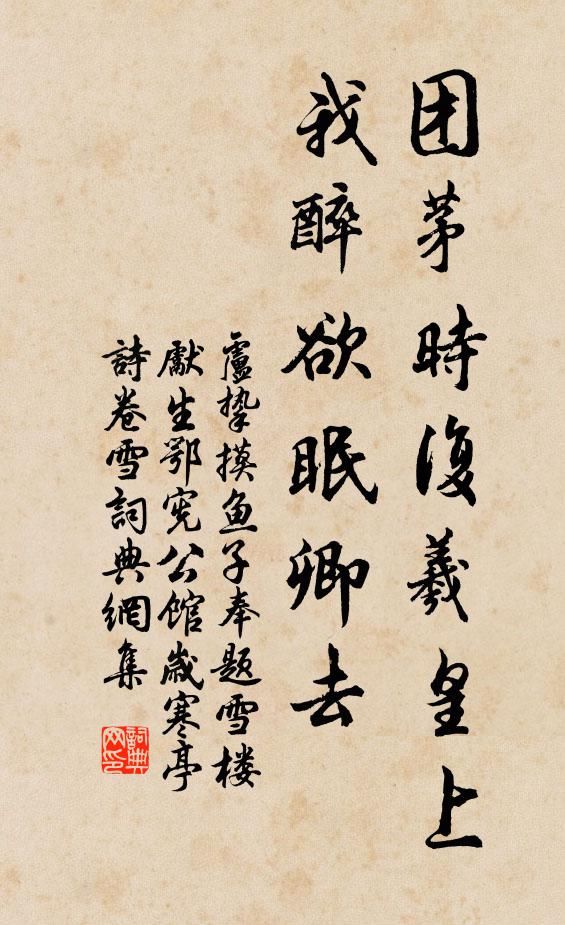 团茅時復羲皇上
我醉欲眠卿去
盧摯摸鱼子奉题雪楼
獻生鄂宪公館歲寒亭
詩卷雪詞典網集
詞典网印